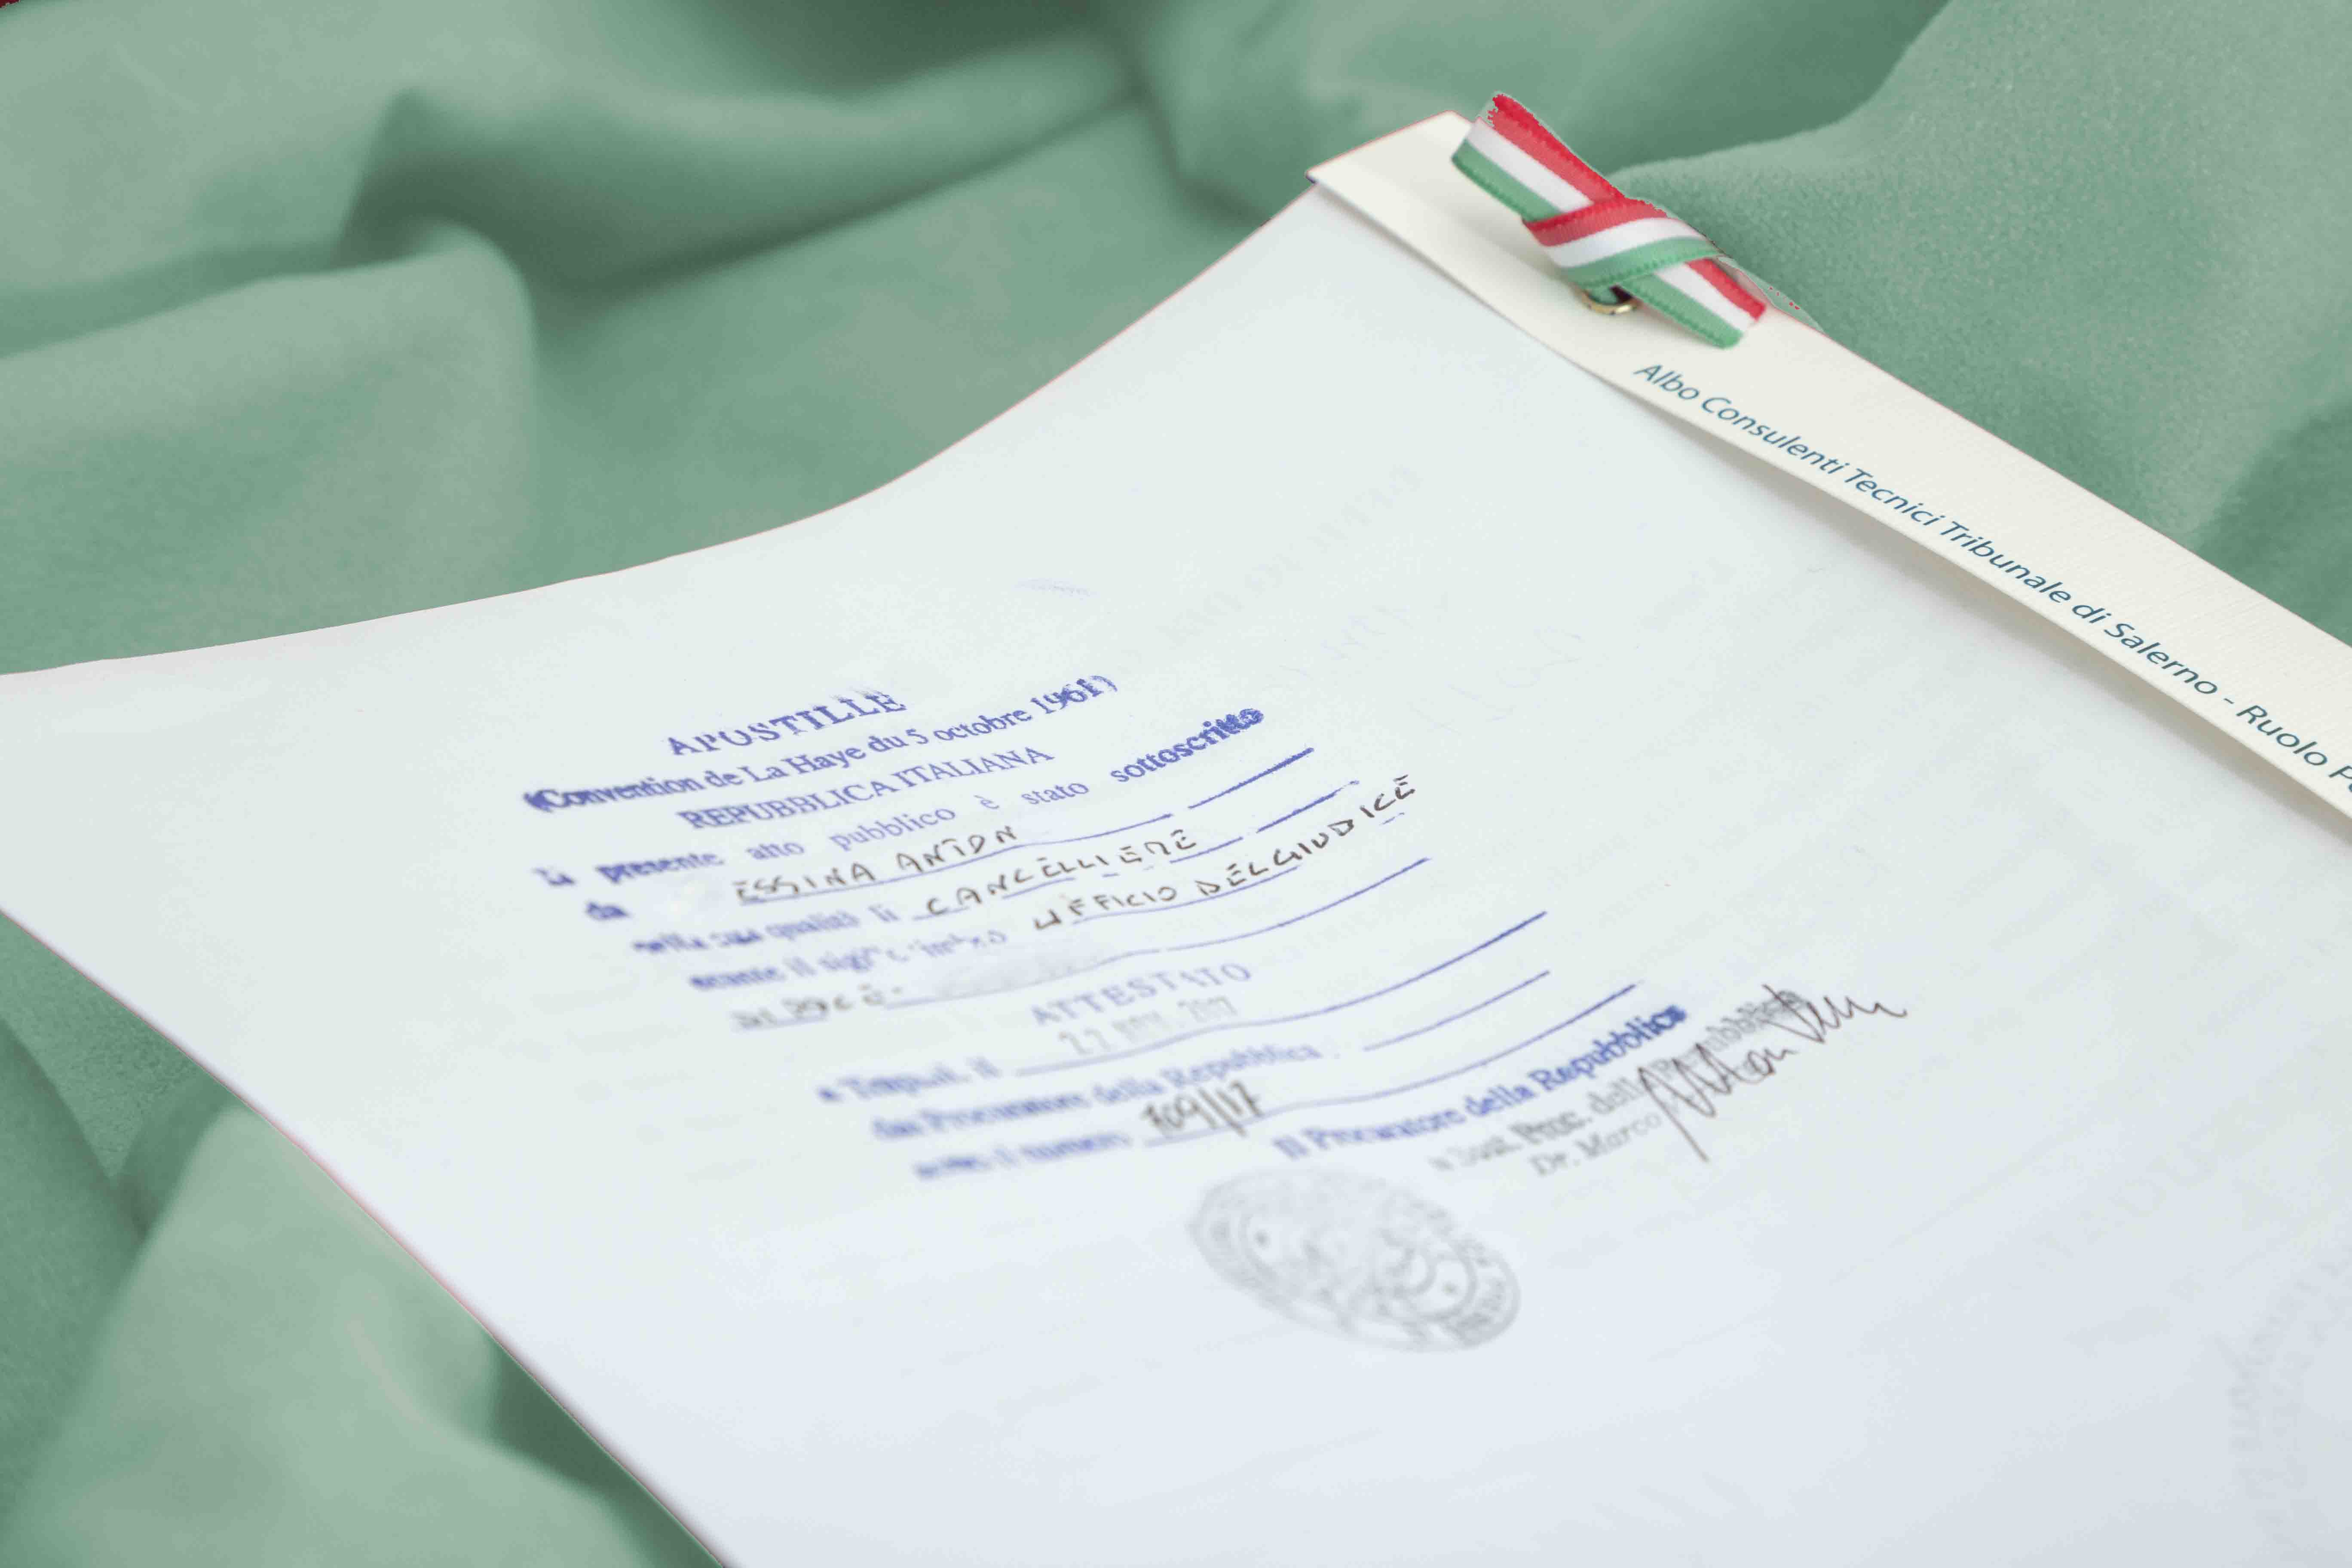 Albo Consulenti Tecnici Tribunale di Salerno - Ruolo
APOSTILLE
(Convention de La Haye du 5 octobre 1961)
REPUBBLICA ITALIANA
presente atto pubblico è stato sottoscritto
da ESSINA ANTON
nella sua qualità CANCELLIERE
UFFICIO DEL GIUDICE
ATTESTATO
dal Procuratore della Repubblica
numero 109/17
Il Procuratore della Repubblica
Sost. Proc. della Repubblica
Dr. Marco